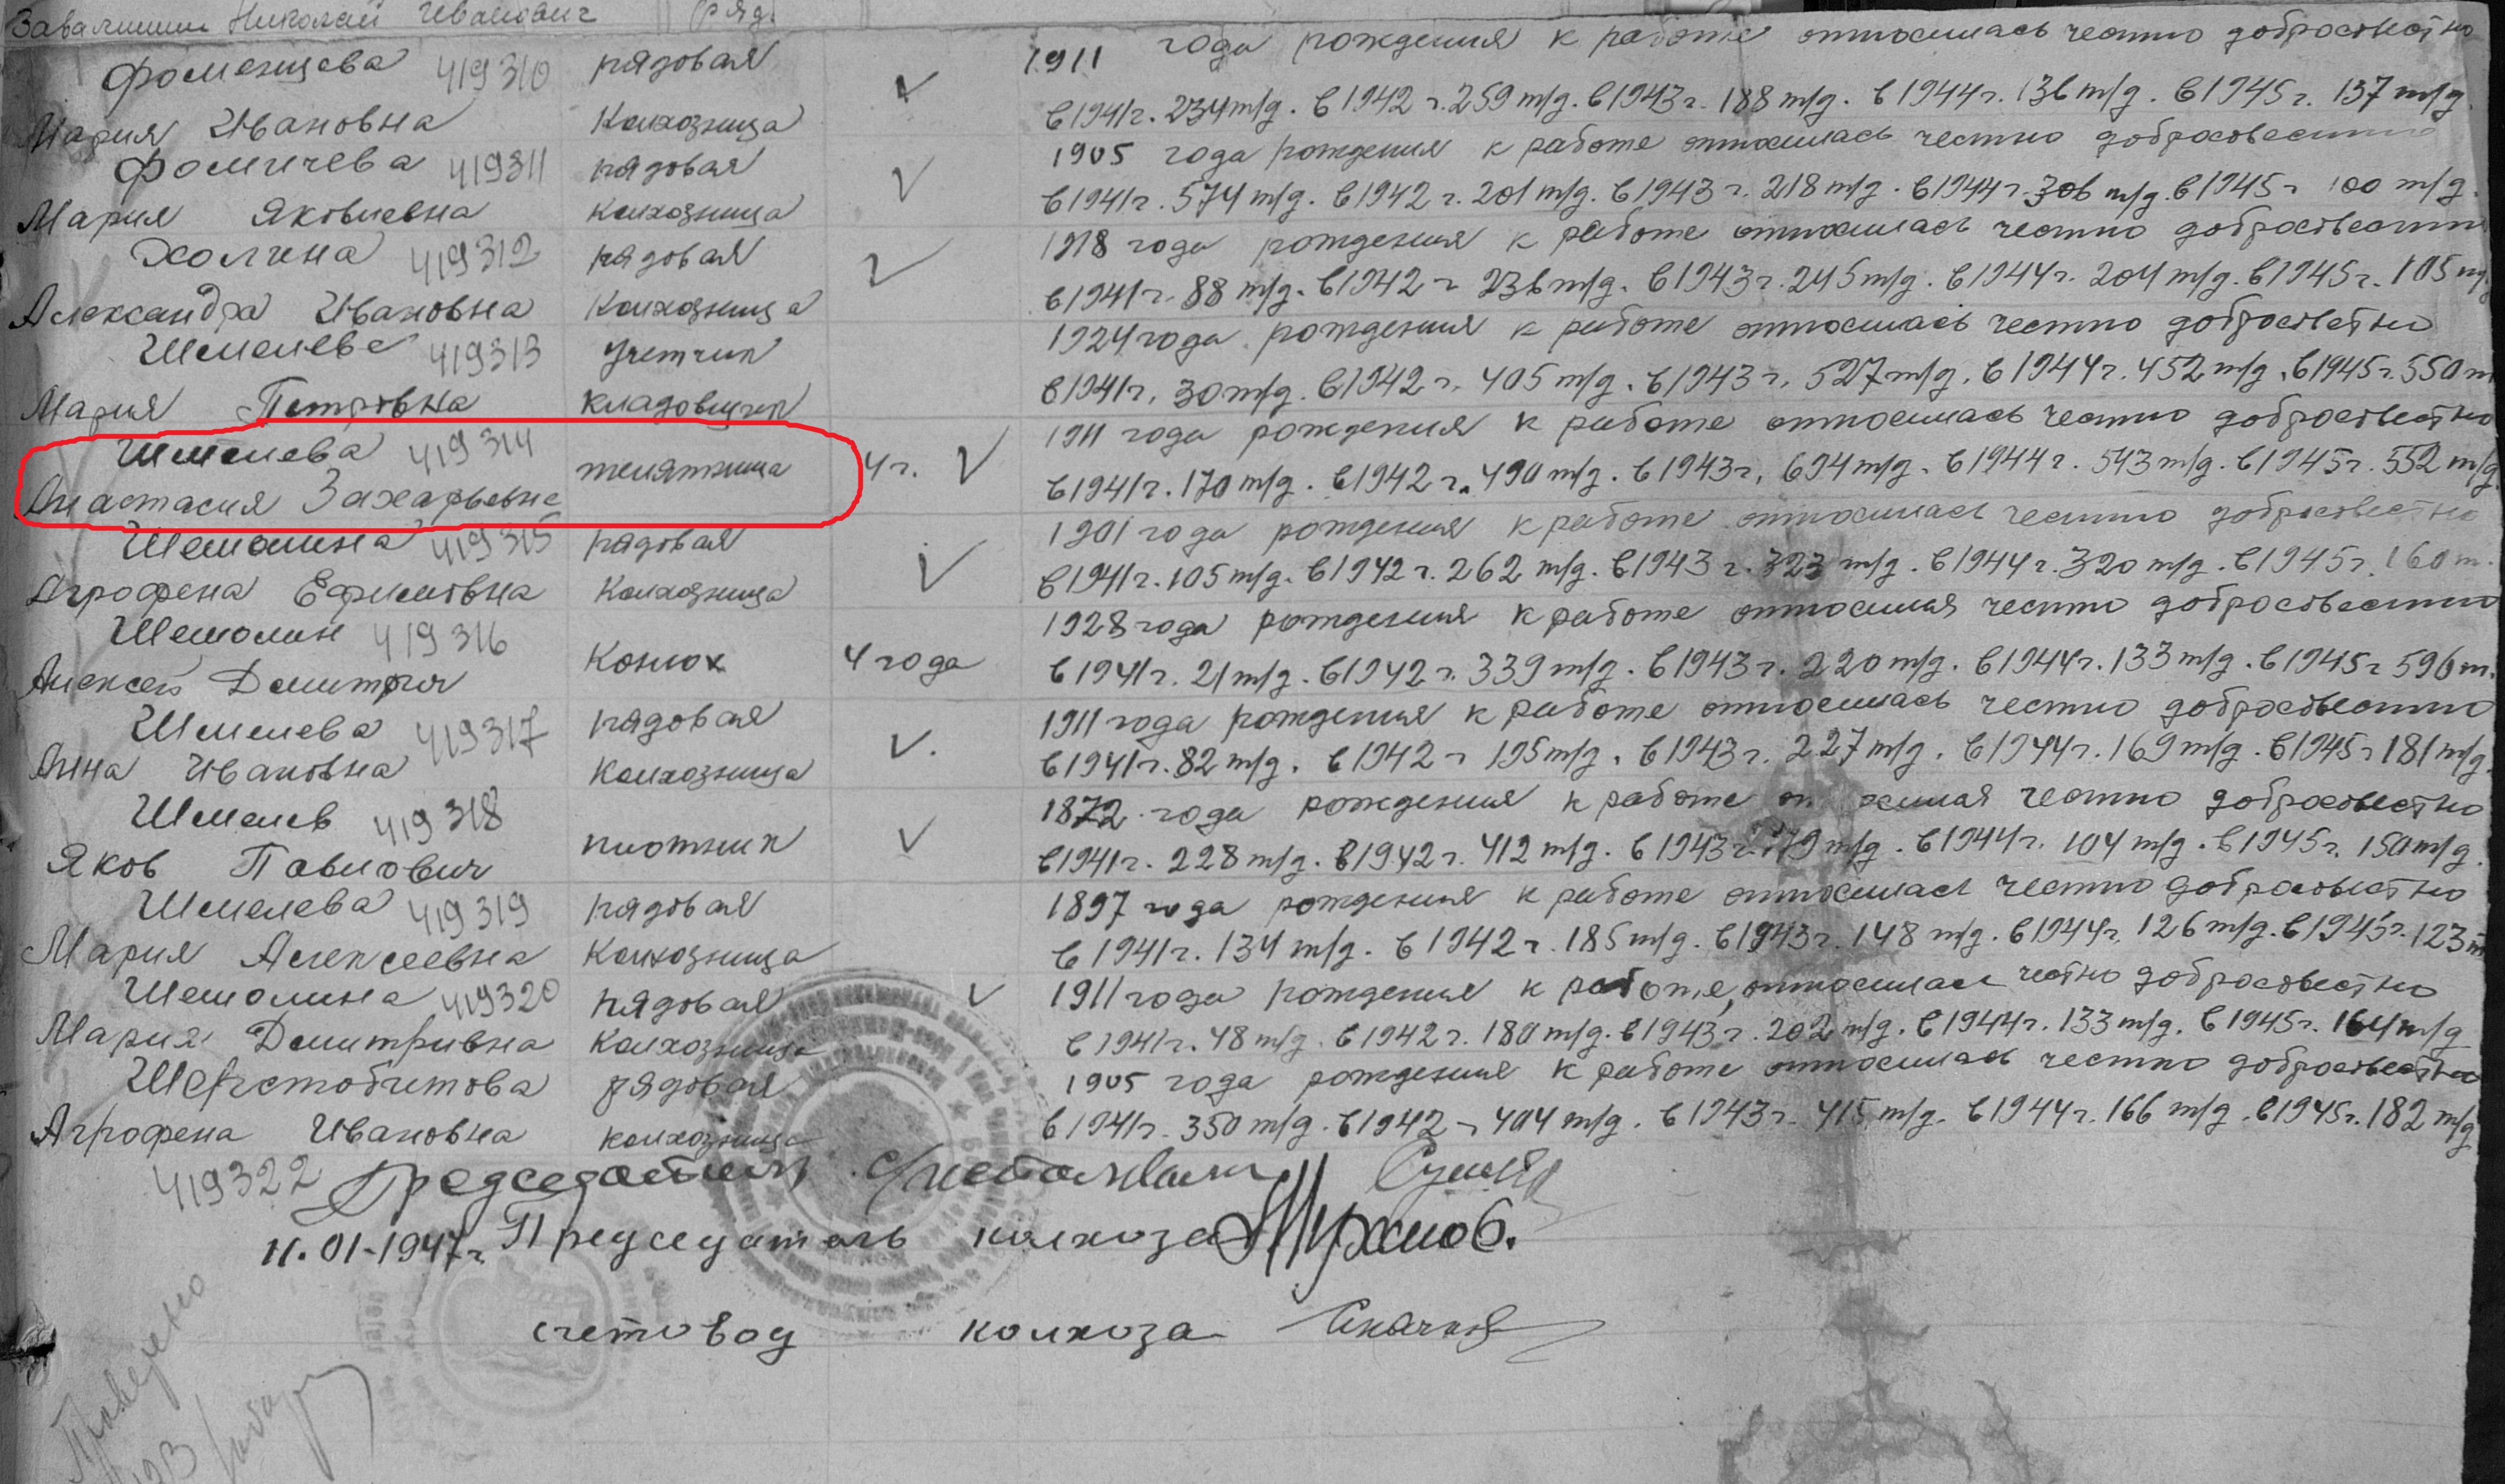 Завалишин Николай Иванович ряд.
Фоменцева 419310 рядовая 1911 года рождения к работе относилась честно добросовестно
Мария Ивановна колхозница в 1941г. 234 т/д. в 1942 г. 259 т/д. в 1943г. 188 т/д. в 1944г. 136 т/д. в 1945г. 137 т/д.
Фомичева 419311 рядовая 1905 года рождения к работе относилась честно добросовестно
Мария Яковлевна колхозница в 1941г. 574 т/д. в 1942 г. 201 т/д. в 1943 г. 218 т/д. в 1944г. 306 т/д. в 1945г 100 т/д.
Холина 419312 рядовая 1918 года рождения к работе относилась честно добросовестно
Александра Ивановна колхозница в 1941г. 88 т/д. в 1942 г 236 т/д. в 1943г. 245 т/д. в 1944г. 204 т/д. в 1945г. 105 т/д
Шмелева 419313 учетчик 1924 года рождения к работе относилась честно добросовестно
Мария Петровна кладовщик в 1941г. 30 т/д. в 1942 г. 405 т/д. в 1943г. 527 т/д. в 1944г. 452 т/д. в 1945г. 550 т
Шмелева 419314 телятница 4 г. 1911 года рождения к работе относилась честно добросовестно
Анастасия Захарьевна в 1941г. 170 т/д. в 1942 г. 490 т/д. в 1943г. 694 т/д. в 1944 г. 543 т/д. в 1945г. 552 т/д.
Шемолина 419315 рядовая 1901 года рождения к работе относилась честно добросовестно
Агрофена Ефимовна колхозница в 1941г. 105 т/д. в 1942 г. 262 т/д. в 1943 г. 323 т/д. в 1944г. 320 т/д. в 1945г. 160 т.
Шемолин 419316 конюх 4 года 1928 года рождения к работе относился честно добросовестно
Алексей Дмитрич в 1941г. 21 т/д. в 1942 г. 339 т/д. в 1943г. 220 т/д. в 1944г. 133 т/д. в 1945г 596 т.
Шмелева 419317 рядовая 1911 года рождения к работе относилась честно добросовестно
Анна Ивановна колхозница в 1941г. 82 т/д. в 1942 г 195 т/д. в 1943г. 227 т/д. в 1944г. 169 т/д. в 1945г 181 т/д.
Шмелев 419318 плотник 1872 года рождения к работе относился честно добросовестно
Яков Павлович в 1941г. 228 т/д. в 1942г. 412 т/д. в 1943г. т/д. в 1944г. 104 т/д. в 1945г. 150 т/д.
Шмелева 419319 рядовая 1897 года рождения к работе относилась честно добросовестно
Мария Алексеевна колхозница в 1941г. 134 т/д. в 1942 г. 185 т/д. в 1943г. 148 т/д. в 1944г. 126 т/д. в 1945г. 123 т
Шемолина 419320 рядовая 1911 года рождения к работе, относилась честно добросовестно
Мария Дмитривна колхозница в 1941г. 48 т/д. в 1942г. 180 т/д. в 1943г. 202 т/д. в 1944г. 133 т/д. в 1945г. 164 т/д
Шерстобитова рядовая 1905 года рождения к работе относилась честно добросовестно
Агрофена Ивановна колхозница в 1941г. 350 т/д. в 1942 г 404 т/д. в 1943г. 415 т/д. в 1944г. 166 т/д. в 1945г. 182 т/д
419322 Председатель
11.01-1947г. Председатель колхоза
счетовод колхоза
Проверено